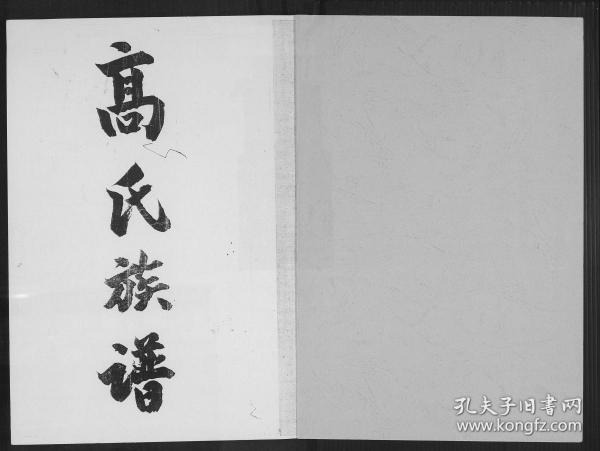 髙氏族谱
孔夫子旧書网
www.kongfz.com